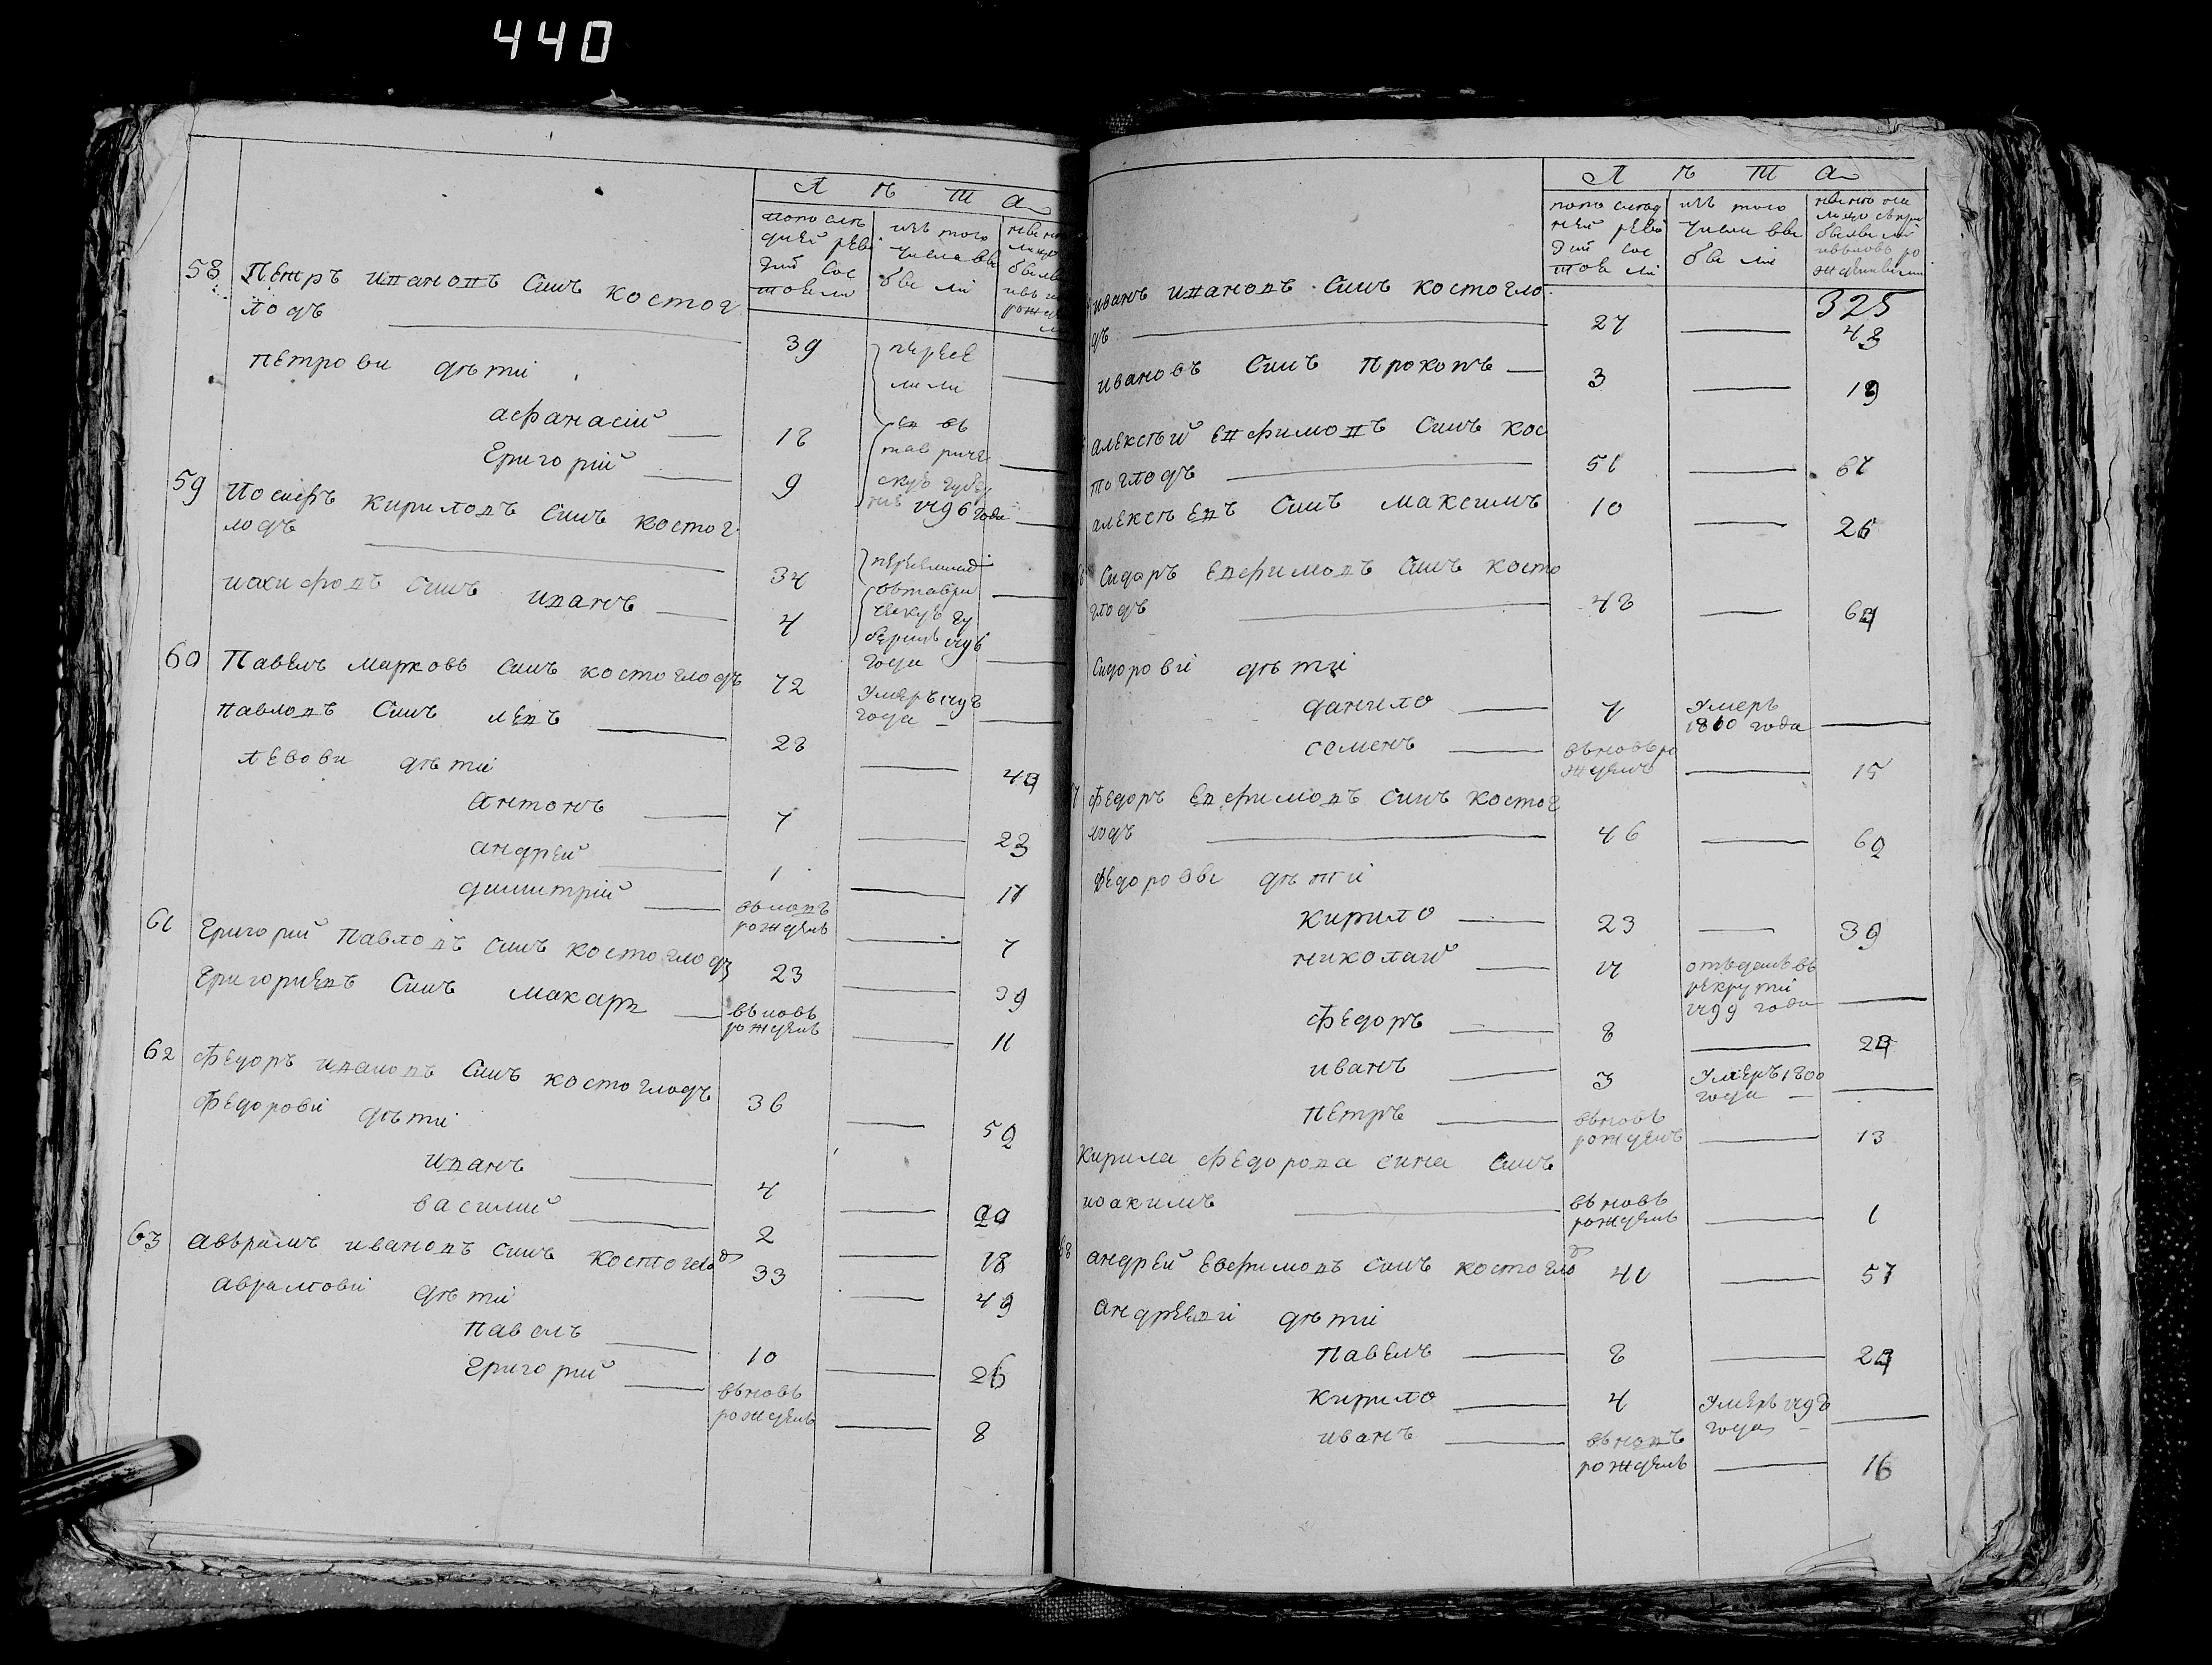 440
Л Ѣ Т А
попослѣ
дней реви
зіи сос
тояли
изъ того
числа вы
были
58 Петръ ивановъ синъ костог
лодъ
39
переве
петрови дѣти
афанасій 18
Григорій 9
тавриче
скую губер
1796 года
59 Иосифъ кириловъ синъ костог
лодъ
34
иосифовъ синъ иванъ 4
года
60 Павелъ марковъ синъ костоглодъ 72 умеръ
года
павловъ синъ левъ 28 44
левови дѣти
антонъ 7 23
андрей 1 17
димитрій вьновь
рожденъ 7
61 Григорий Павловъ синъ костоглодъ 23 39
Григориевъ синъ макаръ вьновь
рожденъ 11
62 Федоръ ивановъ синъ костоглодъ 36 52
Федорови дѣти
иванъ 4 20
василий 2 18
63 Авърамъ ивановъ синъ костоглод 33 49
аврамови дѣти
Павелъ 10 26
Григорий вьновь
рожденъ 8
Л Ѣ Т А
попослѣд
ней реви
зіи сос
тояли
изъ того
числа вы
были
325
иванъ ивановъ синъ костогло
дъ 27 43
ивановъ синъ Прокопъ 3 19
алексѣй Евфимовъ синъ кос
тоглодъ 51 67
алексѣевъ синъ максимъ 10 26
Сидоръ Евфимовъ синъ косто
глодъ 48 64
Сидорови дѣти
данило 7 умеръ
1800 года
семенъ вьновь ро
жденъ 15
Федоръ Евфимовъ синъ костог
лодъ 46 62
Федорови дѣти
Кирило 23 39
николай 17 отъданъ въ
рекрути
1799 года
Федоръ 8 24
иванъ 3 умеръ 1800
года
Петръ вьновь
рожденъ 13
Кирила Федорова сина синъ
иоакимъ вьновь
рожденъ 1
68 андрей Евфимовъ синъ костогло
д 41 57
андрееви дѣти
Павелъ 8 24
Кирило 4 умеръ
года
иванъ вьновь
рожденъ 16